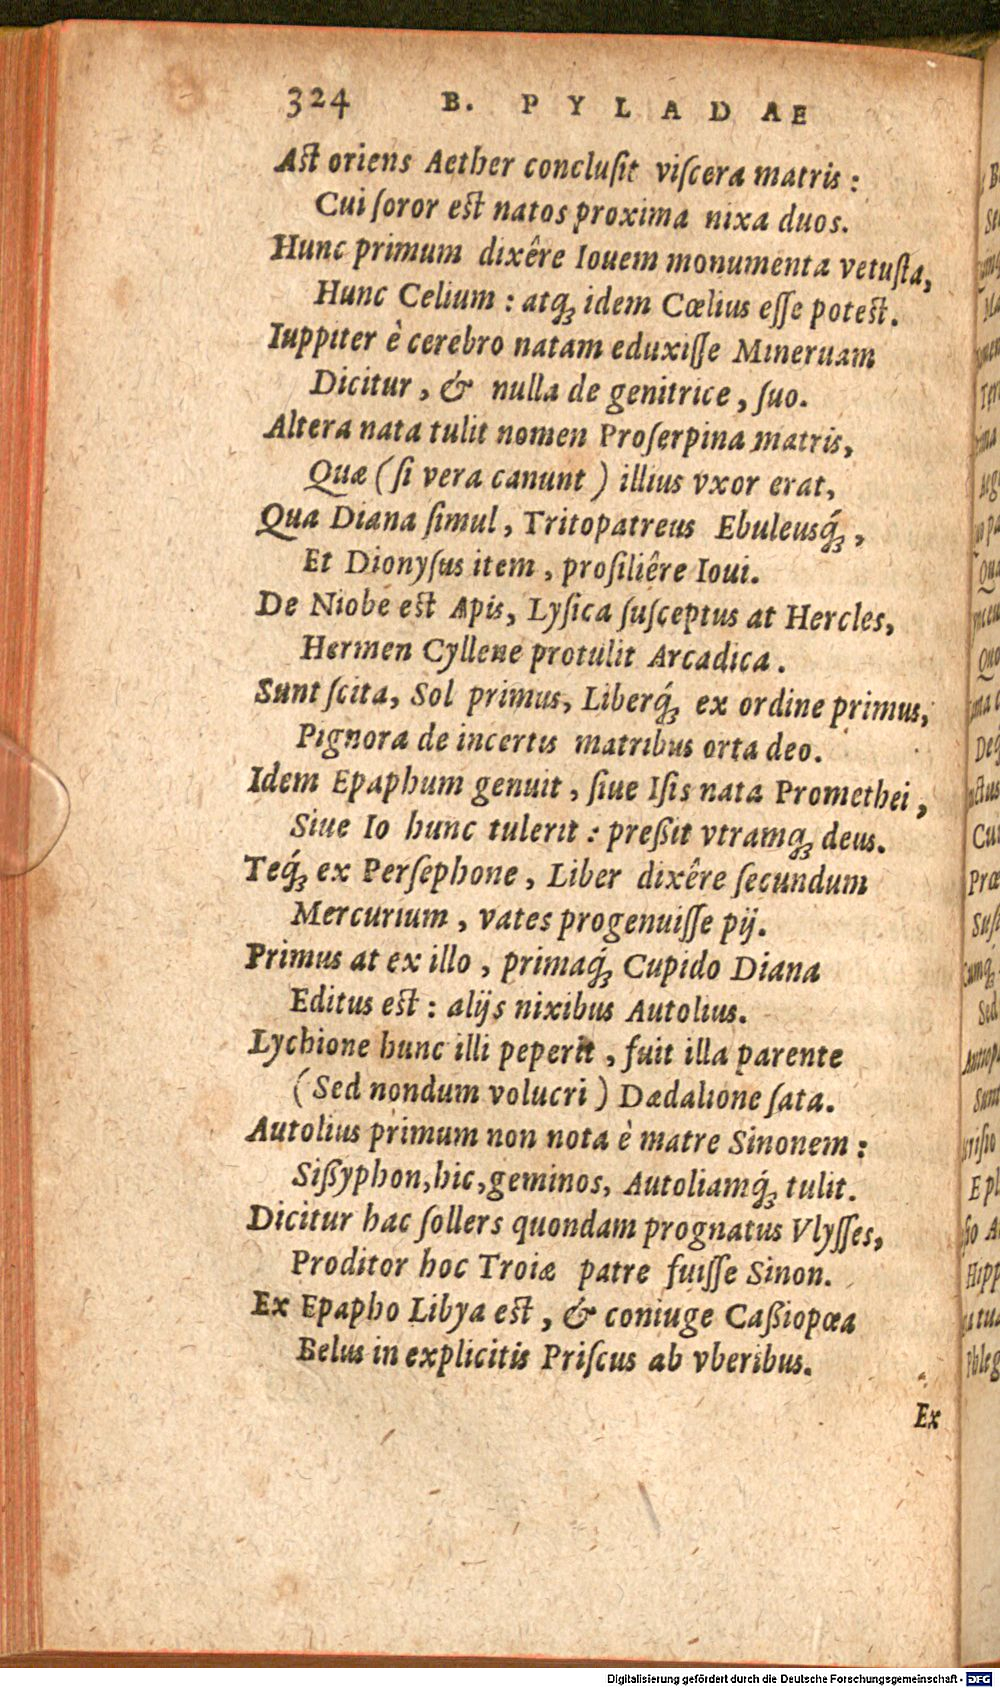 324 B. PYLADAE
Ast oriens Aether conclusit viscera matris :
Cui soror est natos proxima nixa duos.
Hunc primum dixêre Iouem monumenta vetusta,
Hunc Celium : atqꝫ idem Cœlius esse potest.
Iuppiter è cerebro natam eduxisse Mineruam
Dicitur, & nulla de genitrice, suo.
Altera nata tulit nomen Proserpina matris,
Quæ (si vera canunt) illius vxor erat,
Qua Diana simul, Tritopatreus Ebuleusq́ꝫ,
Et Dionysus item, prosiliêre Ioui.
De Niobe est Apis, Lysica susceptus at Hercles,
Hermen Cyllene protulit Arcadica.
Sunt scita, Sol primus, Liberq́ꝫ ex ordine primus,
Pignora de incertis matribus orta deo.
Idem Epaphum genuit, siue Isis nata Promethei,
Siue Io hunc tulerit : preßit vtramqꝫ deus.
Teq́ꝫ ex Persephone, Liber dixêre secundum
Mercurium, vates progenuisse pij.
Primus at ex illo, primaq́ꝫ Cupido Diana
Editus est : alijs nixibus Autolius.
Lychione hunc illi peperit, fuit illa parente
(Sed nondum volucri) Dædalione sata.
Autolius primum non nota è matre Sinonem :
Sißyphon, hic, geminos, Autoliamq́ꝫ tulit.
Dicitur hac sollers quondam prognatus Vlysses,
Proditor hoc Troiæ patre fuisse Sinon.
Ex Epapho Libya est, & coniuge Caßiopœa
Belus in explicitis Priscus ab vberibus.
Ex
Digitalisierung gefördert durch die Deutsche Forschungsgemeinschaft - DFG